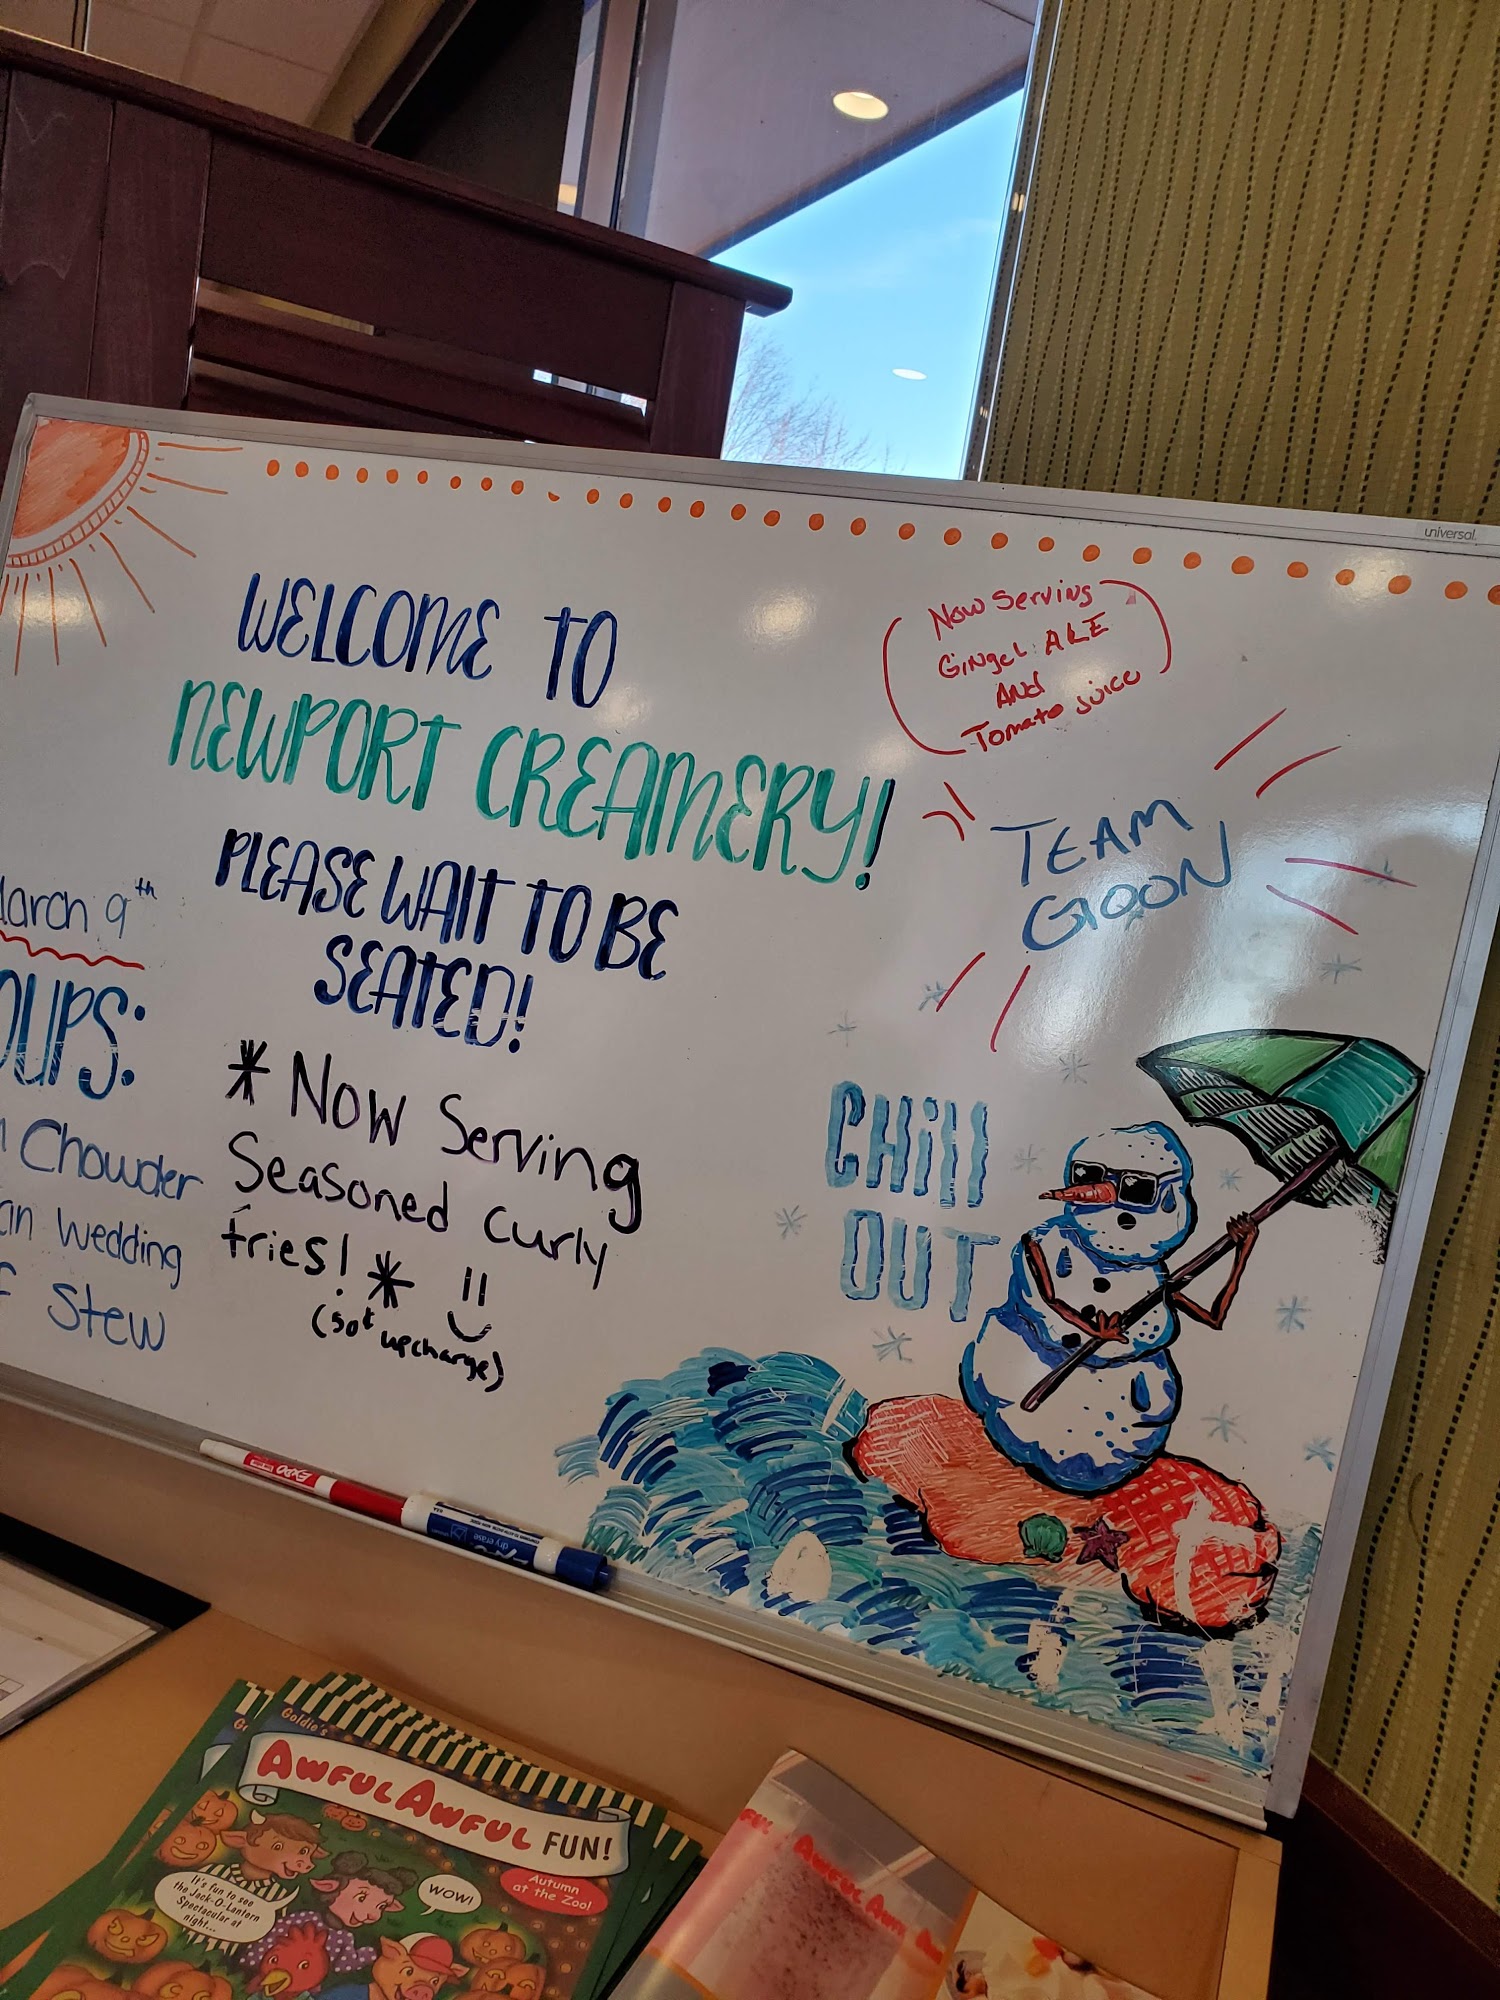 universal
WELCOME TO
NEWPORT CREAMERY!
PLEASE WAIT TO BE
SEATED!
* Now Serving
Seasoned curly
fries! *
(50¢ upcharge)
March 9th
OUPS:
Chowder
an wedding
f Stew
Now Serving
Ginger ALE
AND
Tomato Juice
TEAM
GOON
CHill
OUT
EXPO
dry erase
Goldie's
AWFUL AWFUL FUN!
Autumn
at the Zoo!
WOW!
It's fun to see
the Jack-O-Lantern
Spectacular at
night...
AWFUL AWFUL